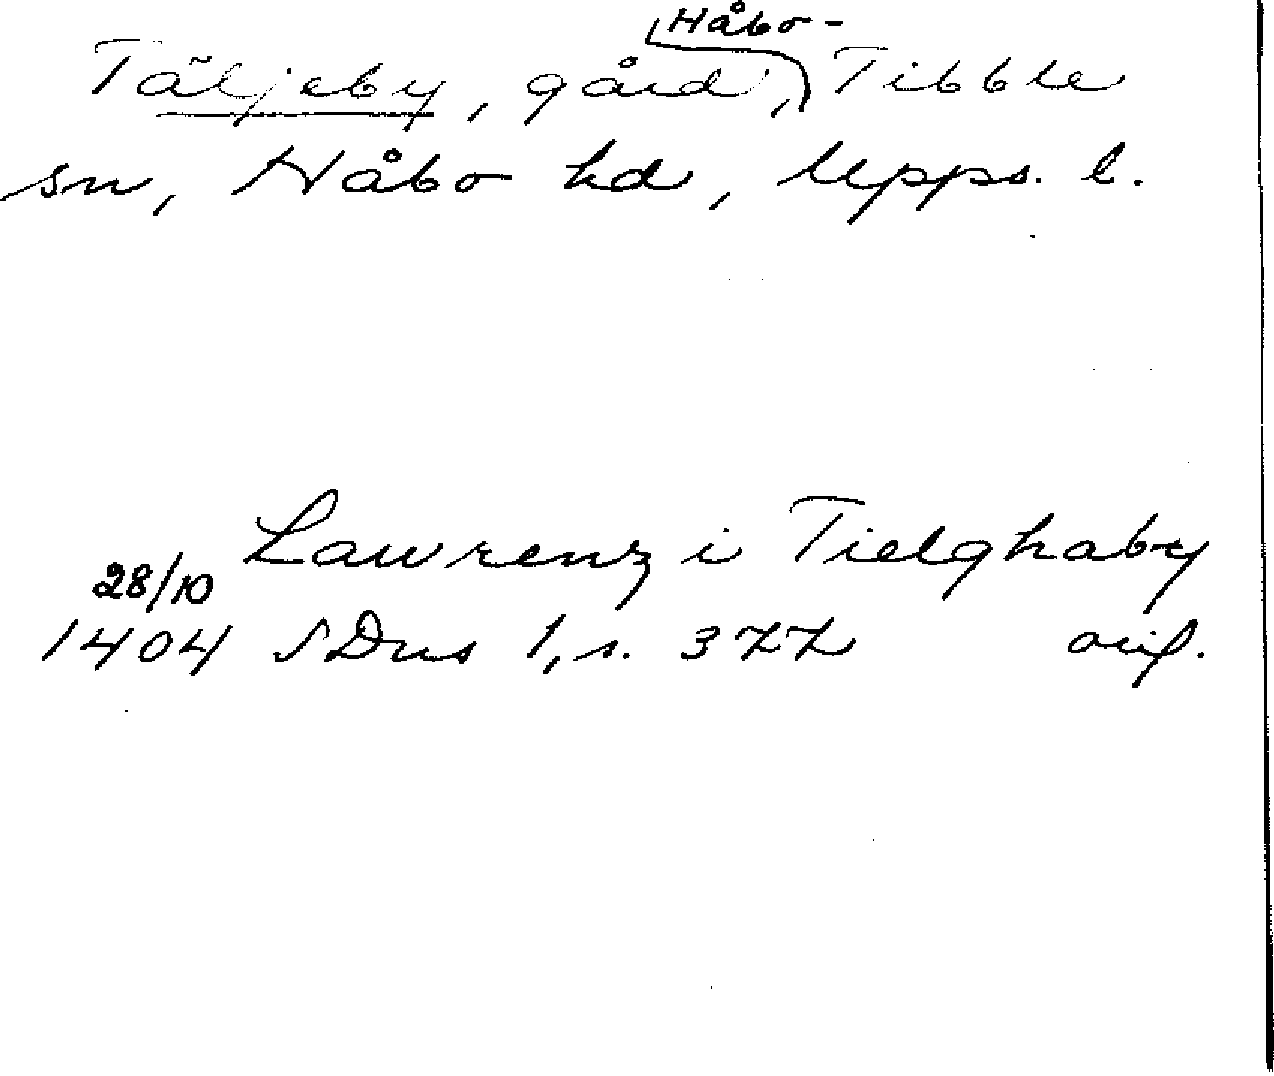 Täljeby, gård, Håbo-Tibble
sn, Håbo hd, Upps. l.
Lawrenz i Tielghaby
28/10
1404 SDns 1, s. 377 orig.